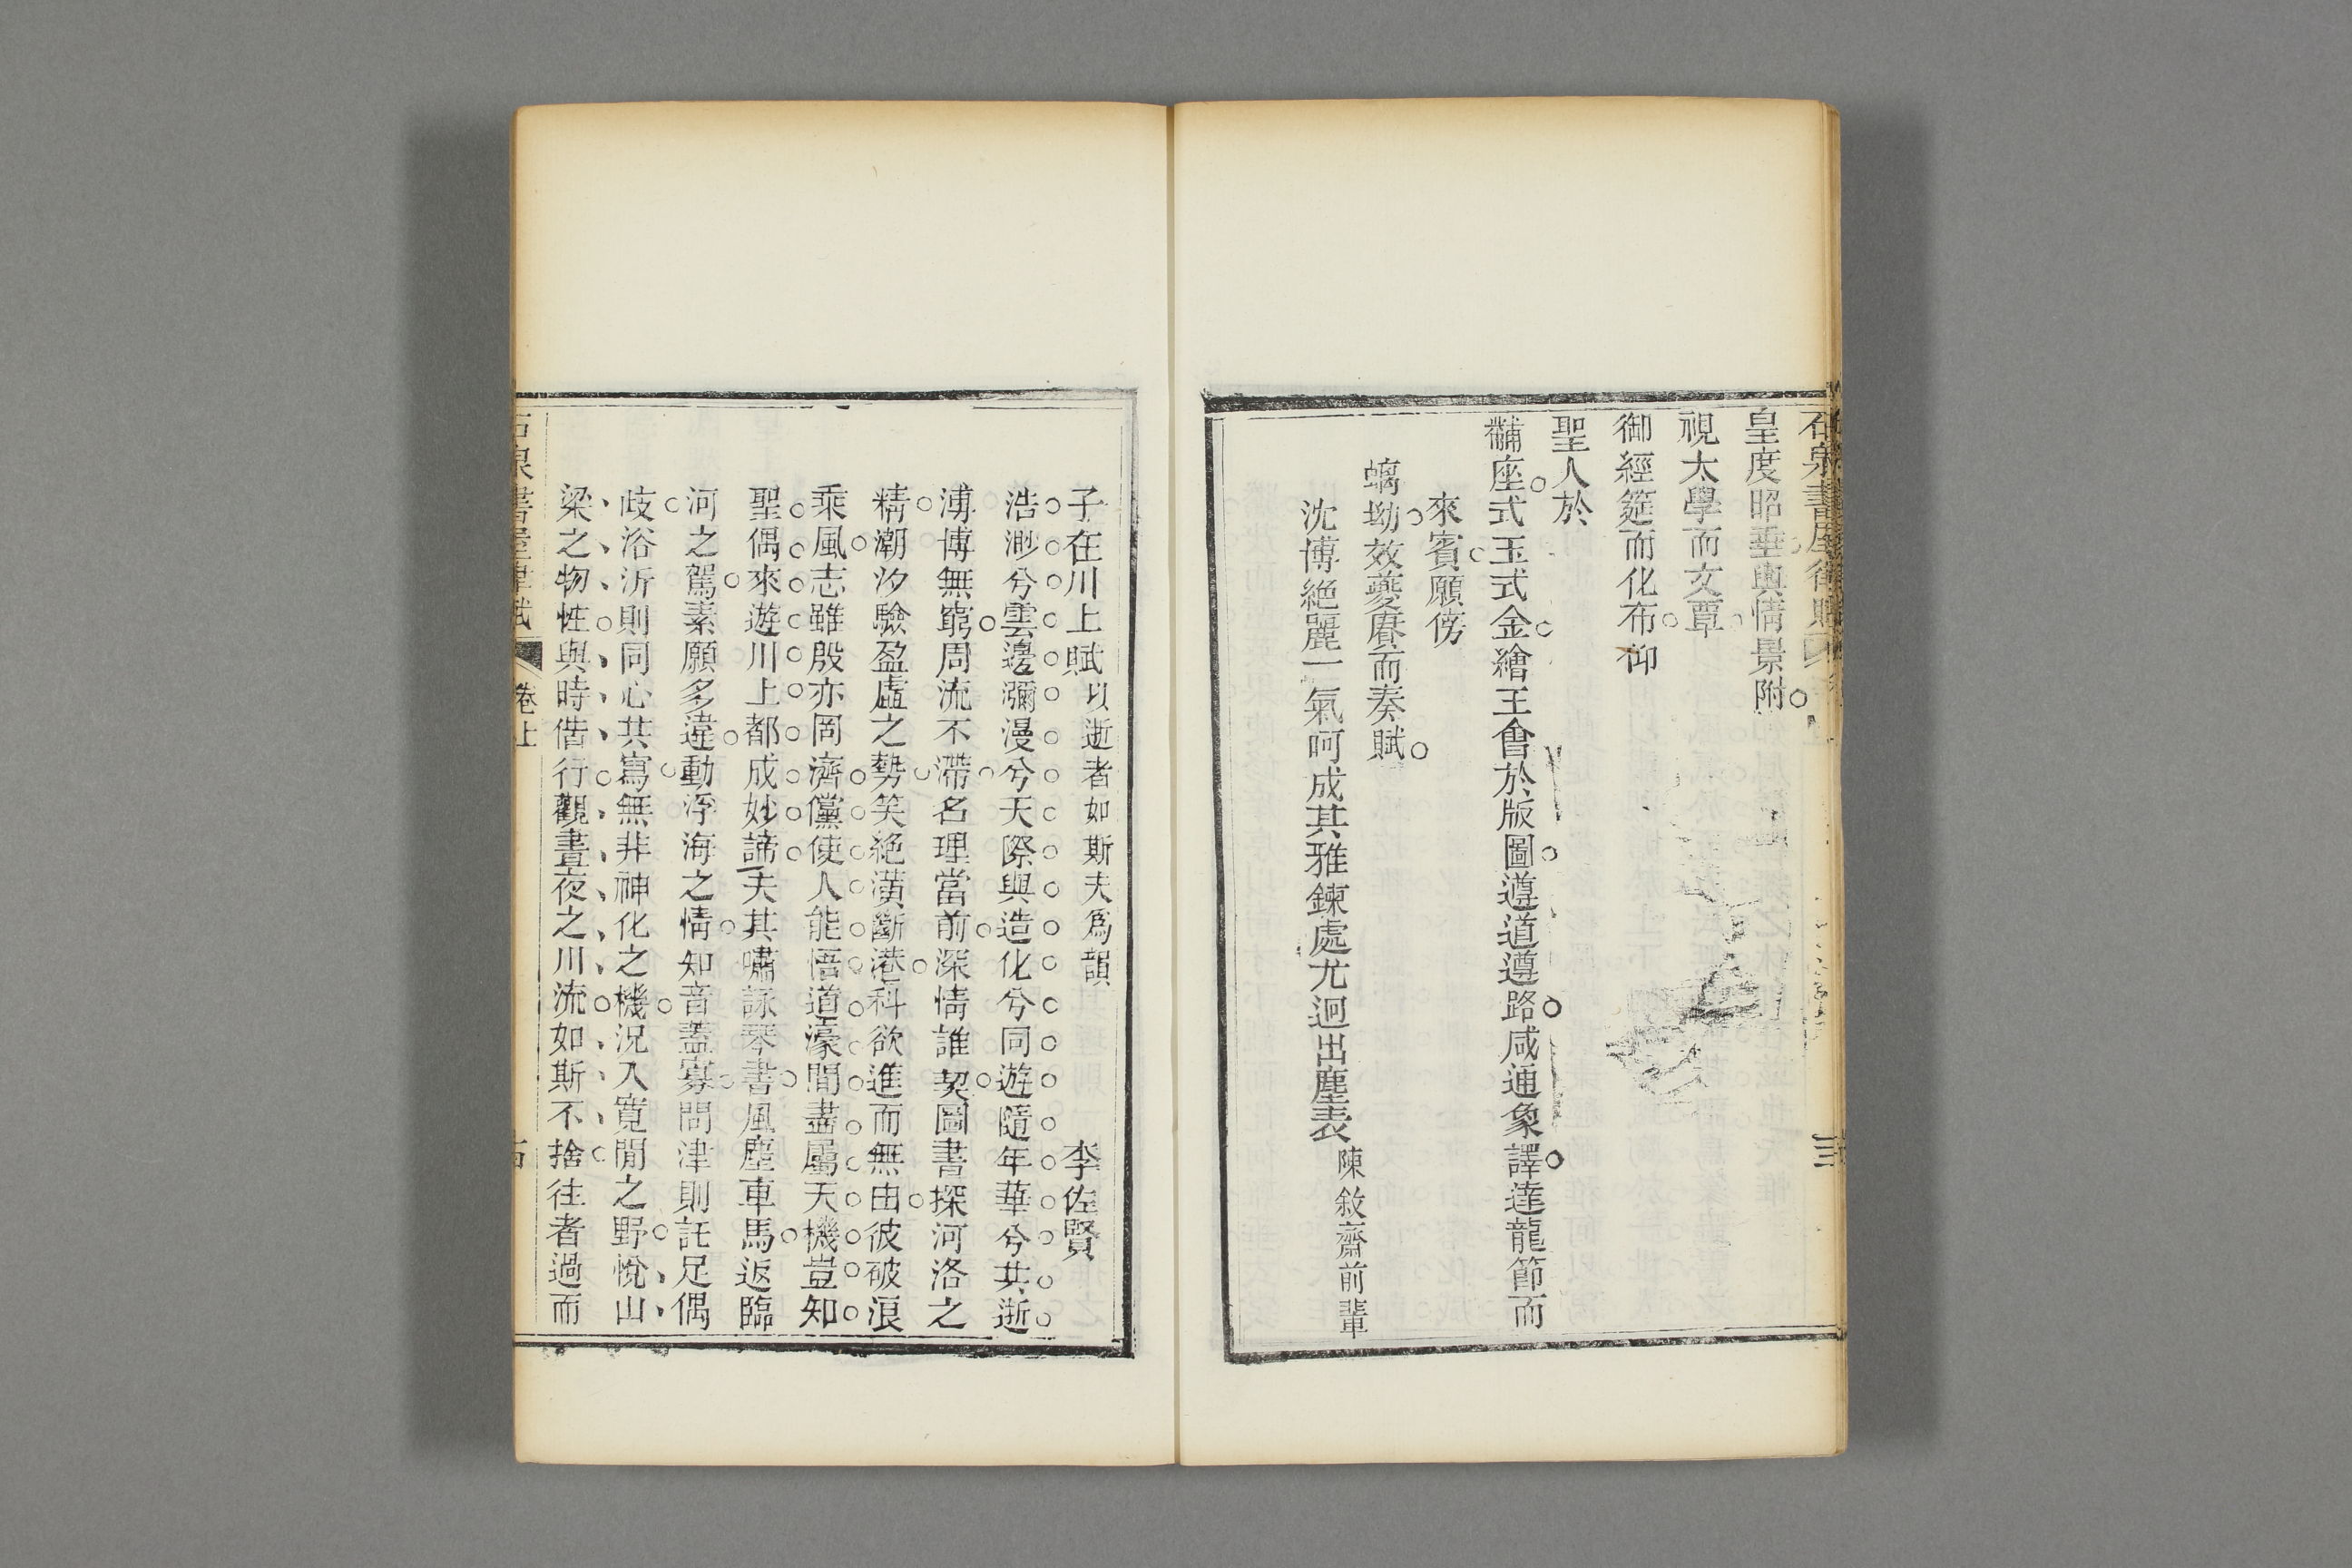 皇度昭垂輿情景附
視太學而文覃
御經筵而化布仰
聖人於
黼座式玉式金繪王會於版圖遵道遵路咸通象譯達龍節而
來賓願傍
螭坳效夔賡而奏賦
沈博絕麗一氣呵成其雅鍊處尤迥出塵表陳敘齋前輩
子在川上賦以逝者如斯夫爲韻 李佐賢
浩渺兮雲邊瀰漫兮天際與造化兮同遊隨年華兮共逝
溥博無窮周流不滯名理當前深情誰契圖書探河洛之
精潮汐驗盈虛之勢笑絕潢斷港科欲進而無由彼破浪
乘風志雖殷亦罔濟儻使人能悟道濠間盡屬天機豈知
聖偶來遊川上都成妙諦夫其嘯詠琴書風塵車馬返臨
河之駕素願多違動浮海之情知音蓋寡問津則託足偶
歧浴沂則同心共寫無非神化之機況入寬閒之野悅山
梁之物性與時偕行觀晝夜之川流如斯不捨往者過而
石泉書屋律賦 卷上